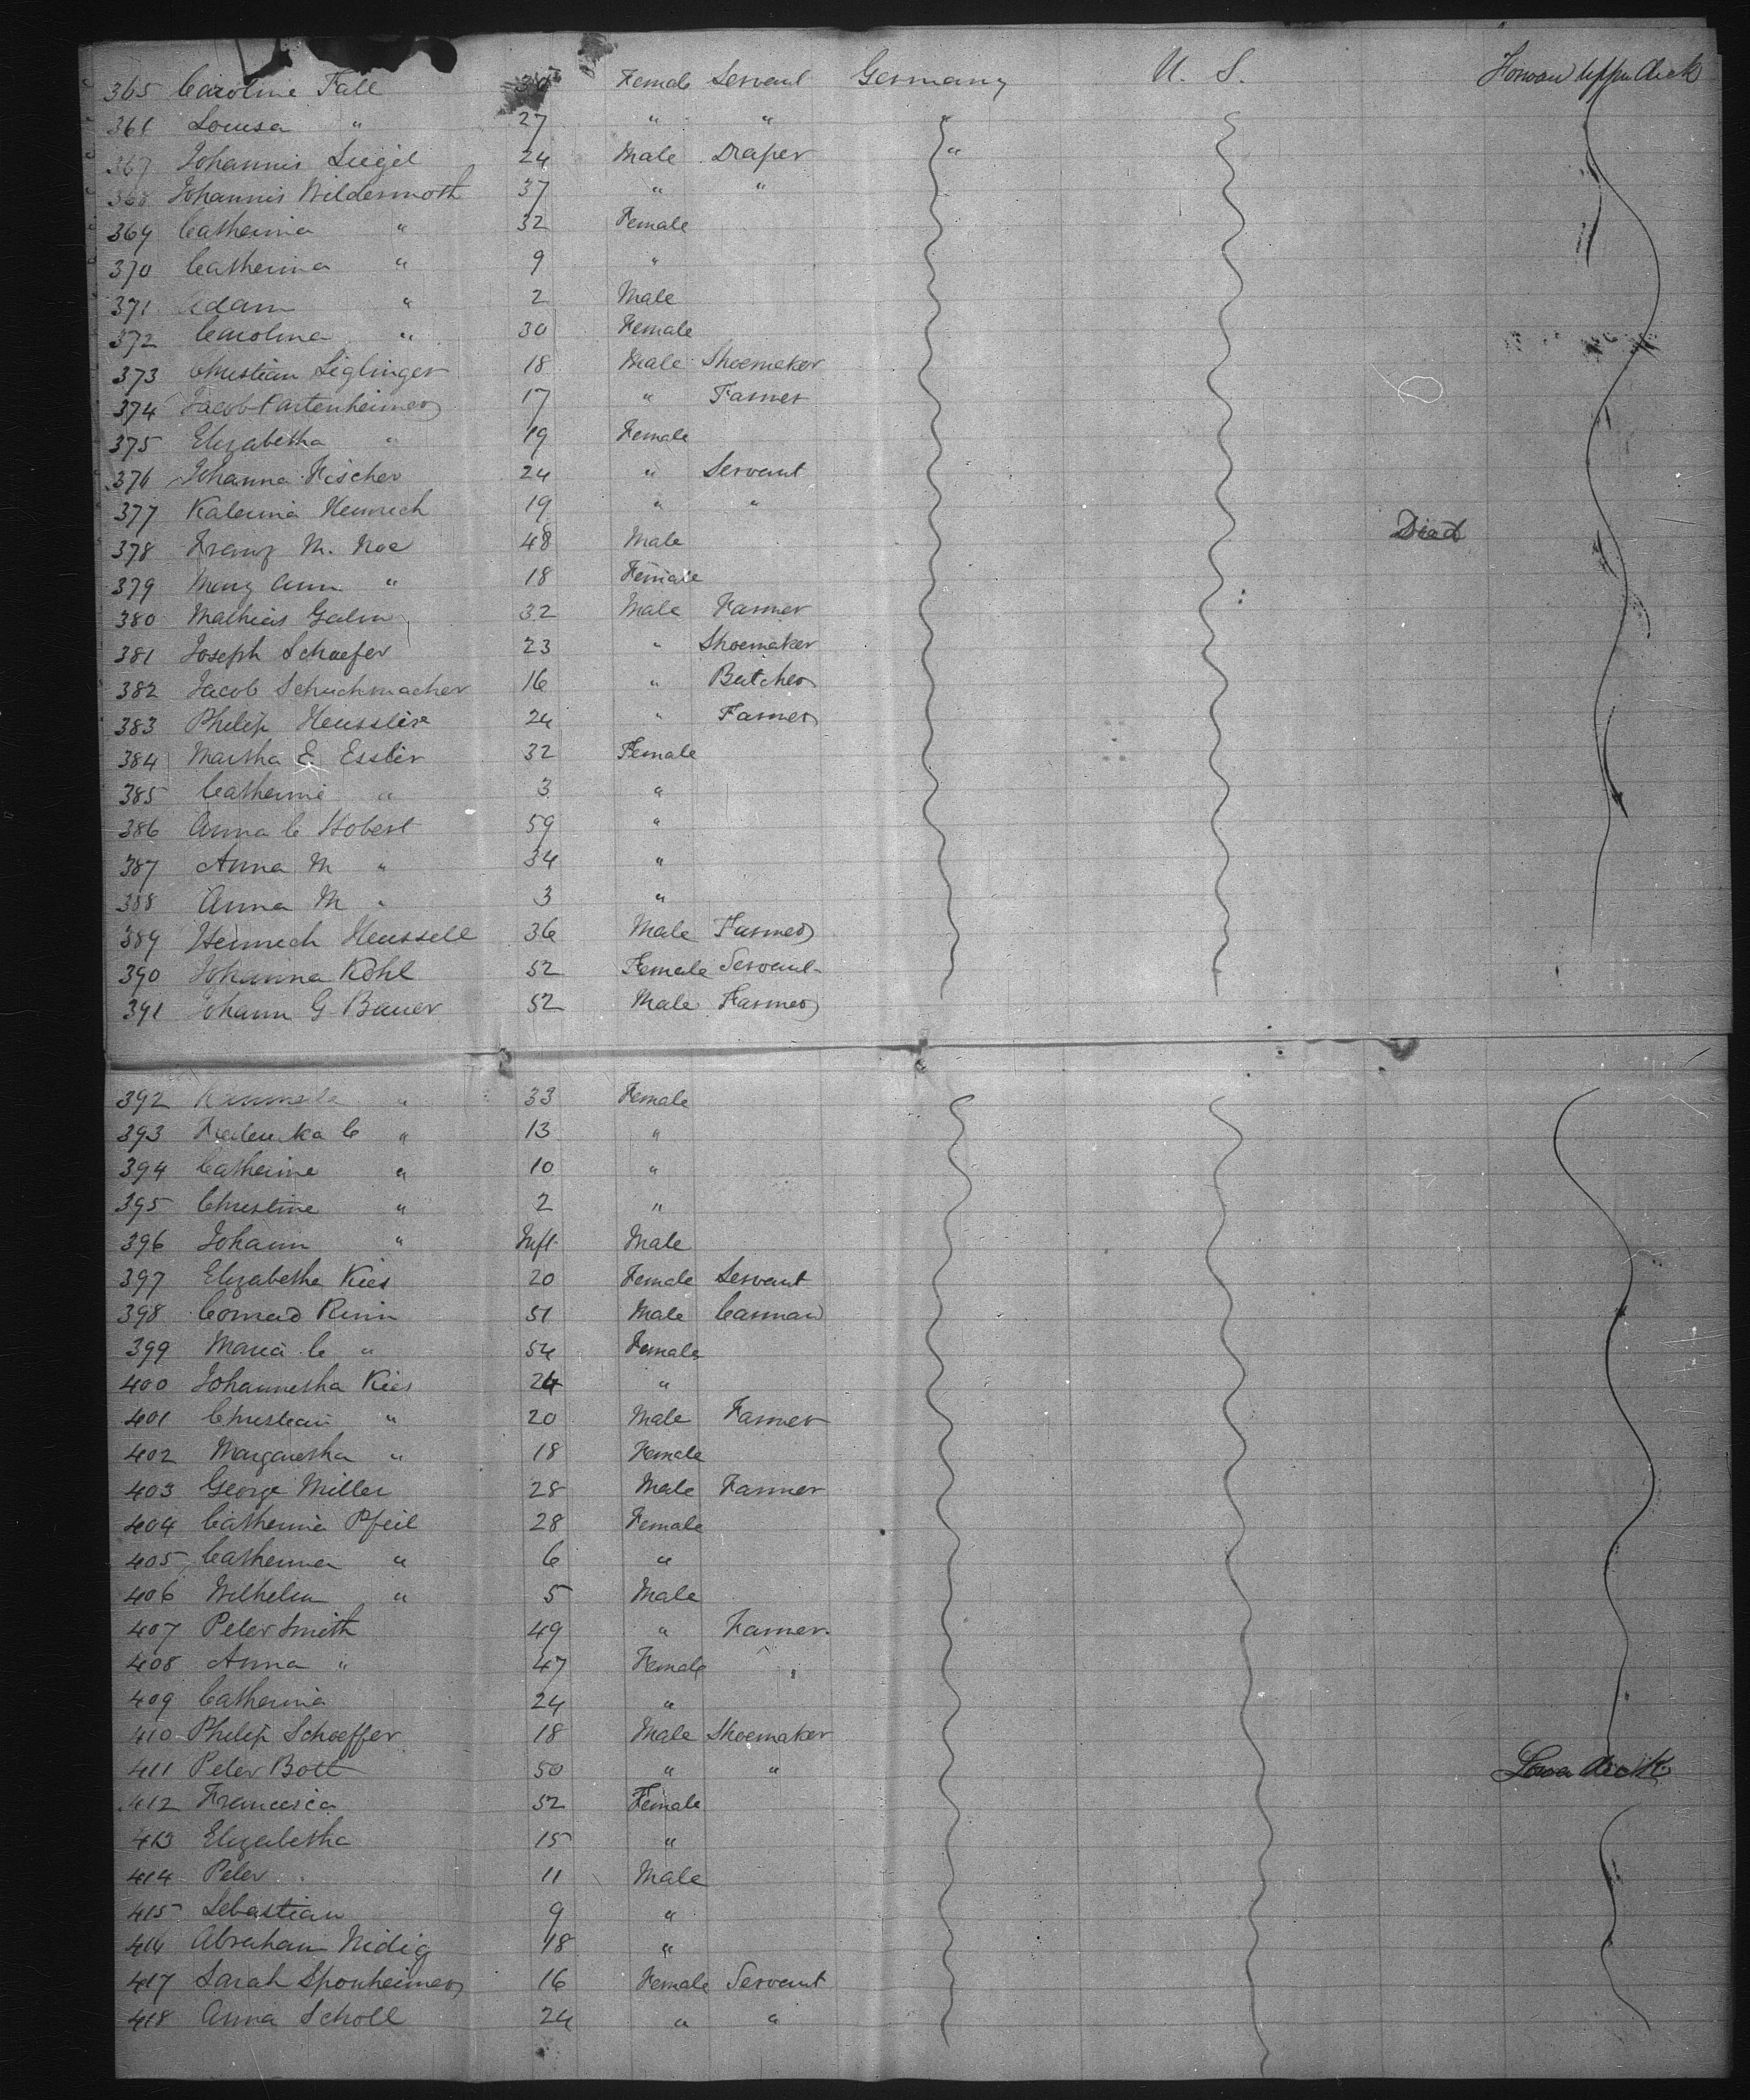 365 Caroline Fall Female Servant Germany U. S. Forward Upper deck
366 Louisa " 27 " " "
367 Johannis Siegel 24 Male Draper "
368 Johannis Wildermoth 37 " "
369 Catherina " 32 Female
370 Catherina " 9 "
371 Adam " 2 Male
372 Carolina " 30 Female
373 Christian Liglinger 18 Male Shoemaker
374 Jacob Partenheimer 17 " Farmer
375 Elizabetha " 19 Female
376 Johanna Fischer 24 " Servant
377 Katerina Heinrich 19 " "
378 Franz M. Noe 48 Male Died
379 Mary Ann " 18 Female
380 Mathias Galm 32 Male Farmer
381 Joseph Schaefer 23 " Shoemaker
382 Jacob Schuchmacher 16 " Butcher
383 Philip 24 " Farmer
384 Martha E. Essler 32 Female
385 Catherine " 3 "
386 Anna C Hobert 59 "
387 Anna M " 34 "
388 Anna M " 3 "
389 Heinrich Heussell 36 Male Farmer
390 Johanna Kohl 52 Female Servant
391 Johann G Bauer 52 Male Farmer
392 " 33 Female
393 C " 13 "
394 Catherine " 10 "
395 Christine " 2 "
396 Johann " Inft Male
397 Elizabetha Kies 20 Female Servant
398 Conrad Rinn 51 Male Carman
399 Maria C " 54 Female
400 Johannetha Kies 24 "
401 Christian " 20 Male Farmer
402 Margaretha " 18 Female
403 George Miller 28 Male Farmer
404 Catherina Pfeil 28 Female
405 Catherina " 6 "
406 Wilhelm " 5 Male
407 Peter Smith 49 " Farmer.
408 Anna " 47 Female
409 Catherina 24 "
410 Philip Schoeffer 18 Male Shoemaker
411 Peter Bott 50 " " Lower deck
412 Francesca 52 Female
413 Elizabetha 15 "
414 Peter 11 Male
415 Sebastian 9 "
416 Abraham Nidig 18 "
417 Sarah Sponheimer 16 Female Servant
418 Anna Scholl 24 " "